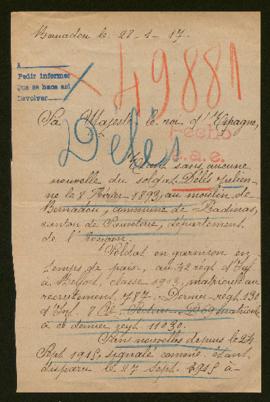 Bernadou le 28-1-17.
A
Pedir informes
Que se hace así
Devolver
49881
Sa Majesté le roi d'Espagne,
Fecho
Délés
Etant sans aucune
nouvelle du soldat Délés
né le 8 Février 1893, au moulin de
Bernadou, commune de
canton de département
de l'Aveyron.
Soldat en garnison en
temps de paix, au 42 régt d'Inf
à Belfort, classe 1913, matricule au
recrutement 787. Dernier régt. 130
d'Inf. 8 Cie.
à ce dernier régt. 11030.
Sans nouvelles depuis le 24
Sept. 1915, signalé comme étant
disparu le 27 Sept. 1915 à